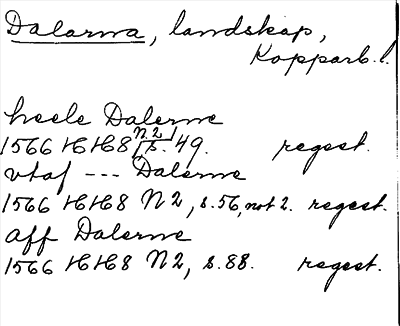 Dalarna, landskap,
Kopparb. l.
heele Dalerne
1566 HH8 N. 2 s. 49. regest.
vtaf --- Dalerne
1566 HH8 N 2, s. 56, not 2. regest.
aff Dalerne
1566 HH8 N 2, s. 88. regest.